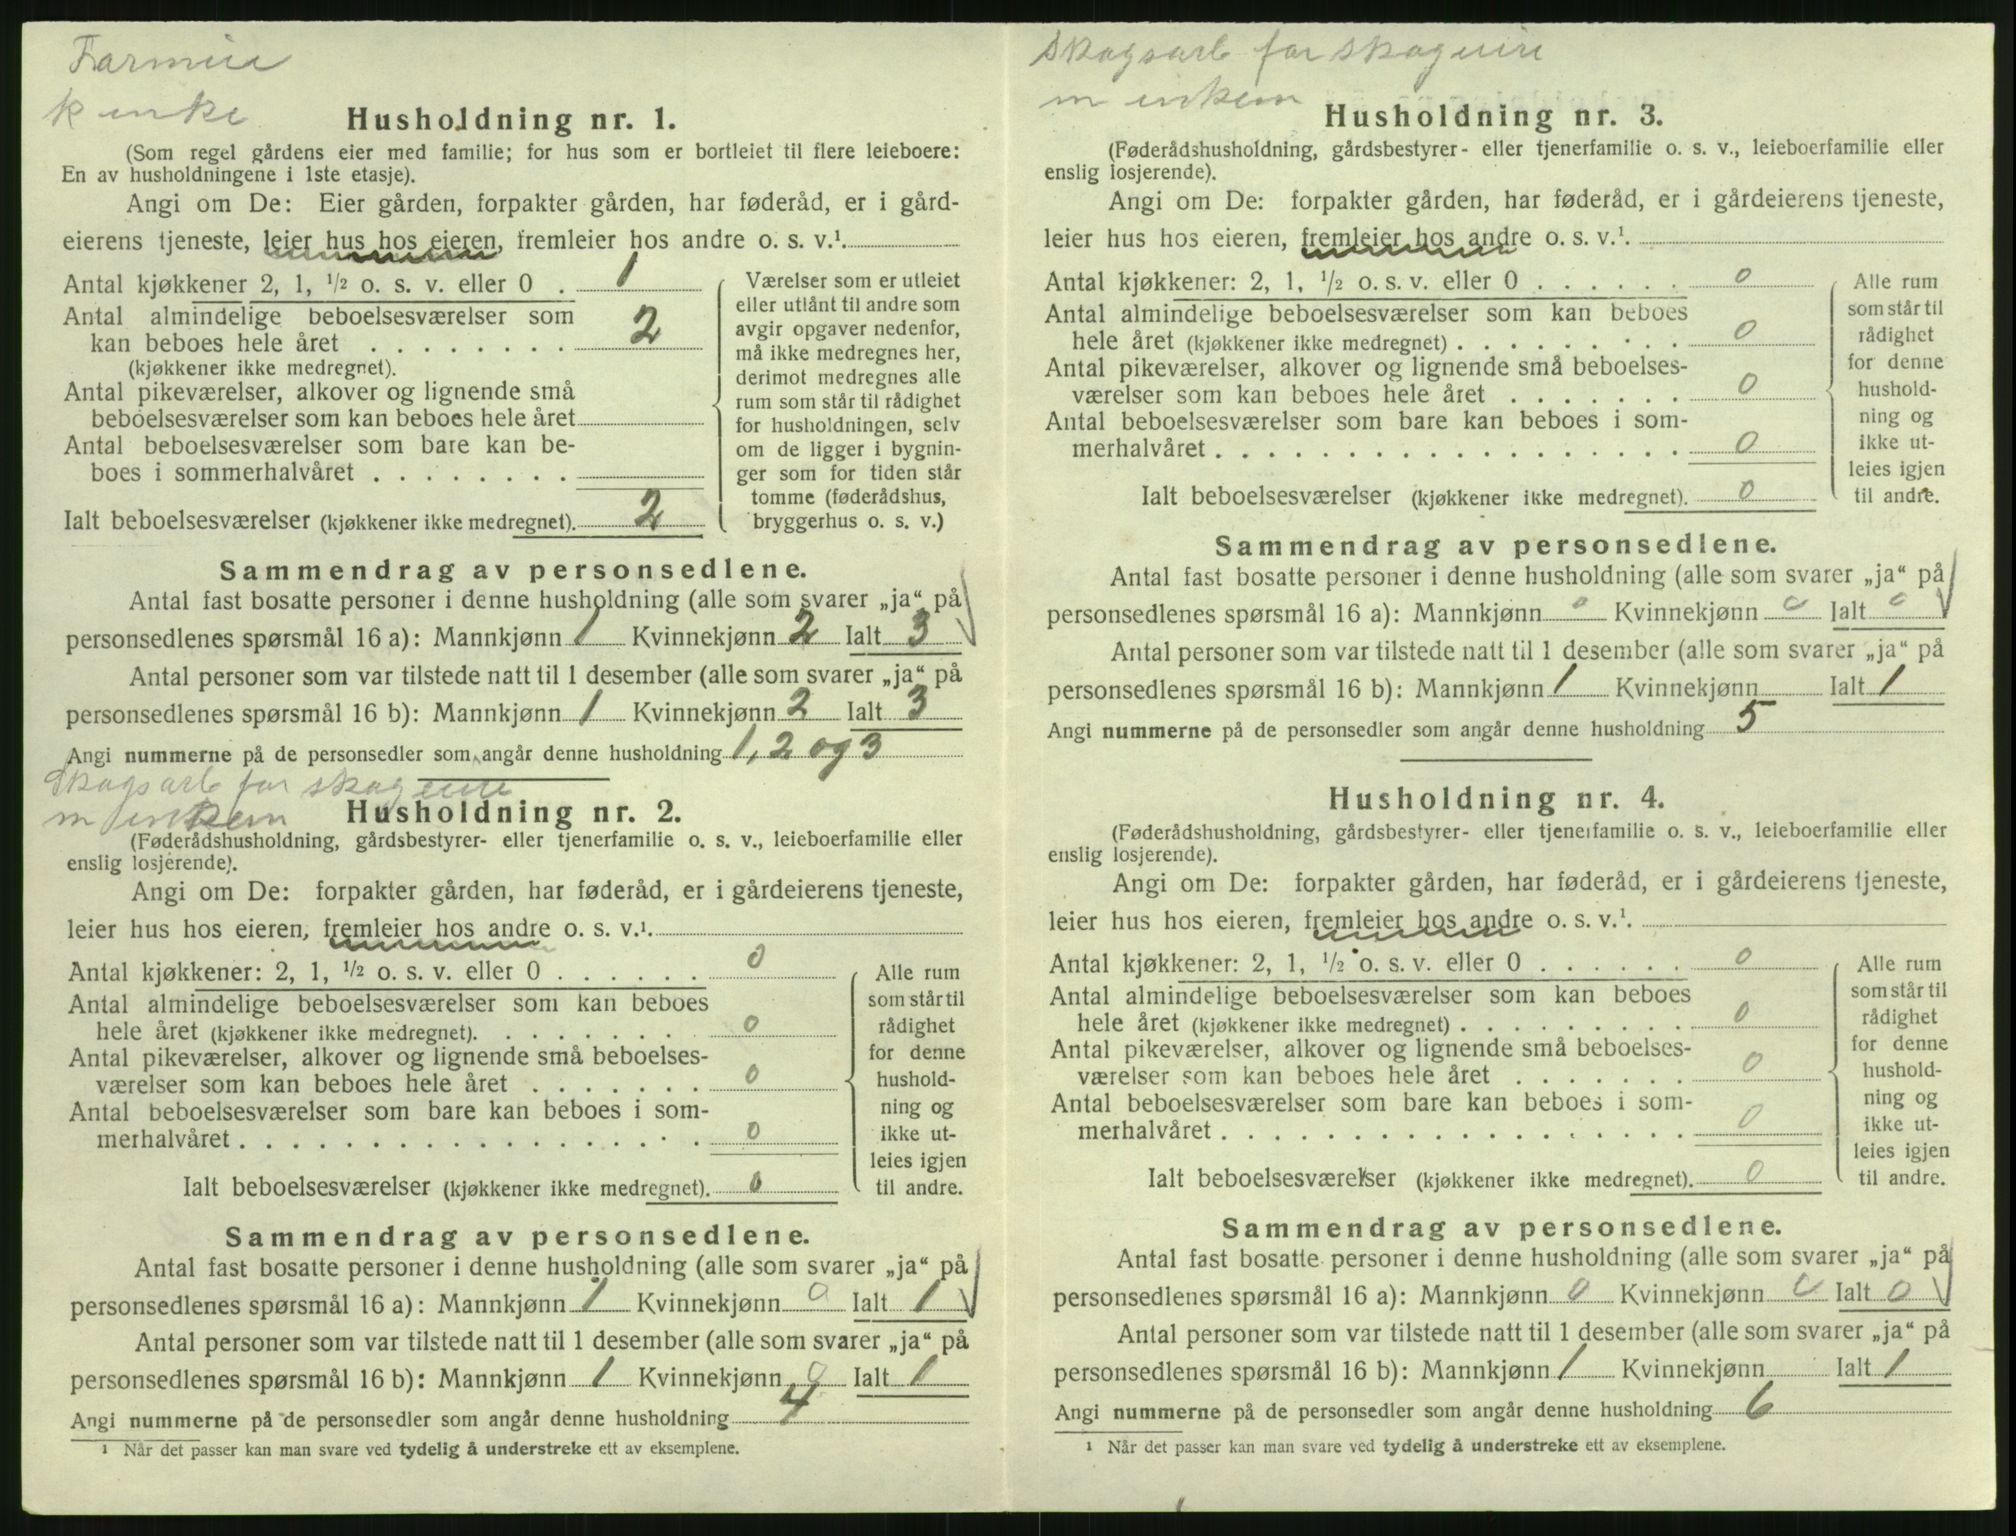 k enke
Husholdning nr. 1.
(Som regel gårdens eier med familie; for hus som er bortleiet til flere leieboere:
En av husholdningene i 1ste etasje).
Angi om De: Eier gården, forpakter gården, har føderåd, er i gård-
eierens tjeneste, leier hus hos eieren, fremleier hos andre o. s. v.¹
Antal kjøkkener 2, 1, ½ o. s. v. eller 0 . 1
Antal almindelige beboelsesværelser som
kan beboes hele året . . . . . . . . 2
(kjøkkener ikke medregnet).
Antal pikeværelser, alkover og lignende små
beboelsesværelser som kan beboes hele året
Antal beboelsesværelser som bare kan be-
boes i sommerhalvåret . . . . . . . .
Ialt beboelsesværelser (kjøkkener ikke medregnet). 2
Værelser som er utleiet
eller utlånt til andre som
avgir opgaver nedenfor,
må ikke medregnes her,
derimot medregnes alle
rum som står til rådighet
for husholdningen, selv
om de ligger i bygnin-
ger som for tiden står
tomme (føderådshus,
bryggerhus o. s. v.)
Sammendrag av personsedlene.
Antal fast bosatte personer i denne husholdning (alle som svarer „ja“ på
personsedlenes spørsmål 16 a): Mannkjønn 1 Kvinnekjønn 2 Ialt 3
Antal personer som var tilstede natt til 1 desember (alle som svarer „ja“ på
personsedlenes spørsmål 16 b): Mannkjønn 1 Kvinnekjønn 2 Ialt 3
Angi nummerne på de personsedler som angår denne husholdning 1, 2 og 3
Skogsarb for
m
Husholdning nr. 2.
(Føderådshusholdning, gårdsbestyrer- eller tjenerfamilie o. s. v., leieboerfamilie eller
enslig losjerende).
Angi om De: forpakter gården, har føderåd, er i gårdeierens tjeneste,
leier hus hos eieren, fremleier hos andre o. s. v.¹.
Antal kjøkkener: 2, 1, ½ o. s. v. eller 0 . . . . . . 0
Antal almindelige beboelsesværelser som kan beboes
hele året (kjøkkener ikke medregnet). . . . . . . . . 0
Antal pikeværelser, alkover og lignende små beboelses-
værelser som kan beboes hele året . . . . . . . 0
Antal beboelsesværelser som bare kan beboes i som-
merhalvåret . . . . . . . . . . . . . . . . . . 0
Ialt beboelsesværelser (kjøkkener ikke medregnet). 0
Alle rum
som står til
rådighet
for denne
hushold-
ning og
ikke ut-
leies igjen
til andre.
Sammendrag av personsedlene.
Antal fast bosatte personer i denne husholdning (alle som svarer „ja“ på
personsedlenes spørsmål 16 a): Mannkjønn 1 Kvinnekjønn 0 Ialt 1
Antal personer som var tilstede natt til 1 desember (alle som svarer „ja“ på
personsedlenes spørsmål 16 b): Mannkjønn 1 Kvinnekjønn 0 Ialt 1
Angi nummerne på de personsedler som angår denne husholdning 4
¹ Når det passer kan man svare ved tydelig å understreke ett av eksemplene.
Skogsarb for
m
Husholdning nr. 3.
(Føderådshusholdning, gårdsbestyrer- eller tjenerfamilie o. s. v., leieboerfamilie eller
enslig losjerende).
Angi om De: forpakter gården, har føderåd, er i gårdeierens tjeneste,
leier hus hos eieren, fremleier hos andre o. s. v.¹.
Antal kjøkkener: 2, 1, ½ o. s. v. eller 0 . . . . . . 0
Antal almindelige beboelsesværelser som kan beboes
hele året (kjøkkener ikke medregnet) . . . . . . . . . 0
Antal pikeværelser, alkover og lignende små beboelses-
værelser som kan beboes hele året . . . . . . . 0
Antal beboelsesværelser som bare kan beboes i som-
merhalvåret . . . . . . . . . . . . . . . . . . 0
Ialt beboelsesværelser (kjøkkener ikke medregnet). 0
Alle rum
som står til
rådighet
for denne
hushold-
ning og
ikke ut-
leies igjen
til andre.
Sammendrag av personsedlene.
Antal fast bosatte personer i denne husholdning (alle som svarer „ja“ på
personsedlenes spørsmål 16 a): Mannkjønn 0 Kvinnekjønn 0 Ialt 0
Antal personer som var tilstede natt til 1 desember (alle som svarer „ja“ på
personsedlenes spørsmål 16 b): Mannkjønn 1 Kvinnekjønn Ialt 1
Angi nummerne på de personsedler som angår denne husholdning 5
Husholdning nr. 4.
(Føderådshusholdning, gårdsbestyrer- eller tjenerfamilie o. s. v., leieboerfamilie eller
enslig losjerende).
Angi om De: forpakter gården, har føderåd, er i gårdeierens tjeneste,
leier hus hos eieren, fremleier hos andre o. s. v.¹.
Antal kjøkkener: 2, 1, ½ o. s. v. eller 0 . . . . . . 0
Antal almindelige beboelsesværelser som kan beboes
hele året (kjøkkener ikke medregnet) . . . . . . . . . 0
Antal pikeværelser, alkover og lignende små beboelses-
værelser som kan beboes hele året . . . . . . . 0
Antal beboelsesværelser som bare kan beboes i som-
merhalvåret . . . . . . . . . . . . . . . . . . 0
Ialt beboelsesværelser (kjøkkener ikke medregnet). 0
Alle rum
som står til
rådighet
for denne
hushold-
ning og
ikke ut-
leies igjen
til andre.
Sammendrag av personsedlene.
Antal fast bosatte personer i denne husholdning (alle som svarer „ja“ på
personsedlenes spørsmål 16 a): Mannkjønn 0 Kvinnekjønn 0 Ialt 0
Antal personer som var tilstede natt til 1 desember (alle som svarer „ja“ på
personsedlenes spørsmål 16 b): Mannkjønn 1 Kvinnekjønn Ialt 1
Angi nummerne på de personsedler som angår denne husholdning 6
¹ Når det passer kan man svare ved tydelig å understreke ett av eksemplene.